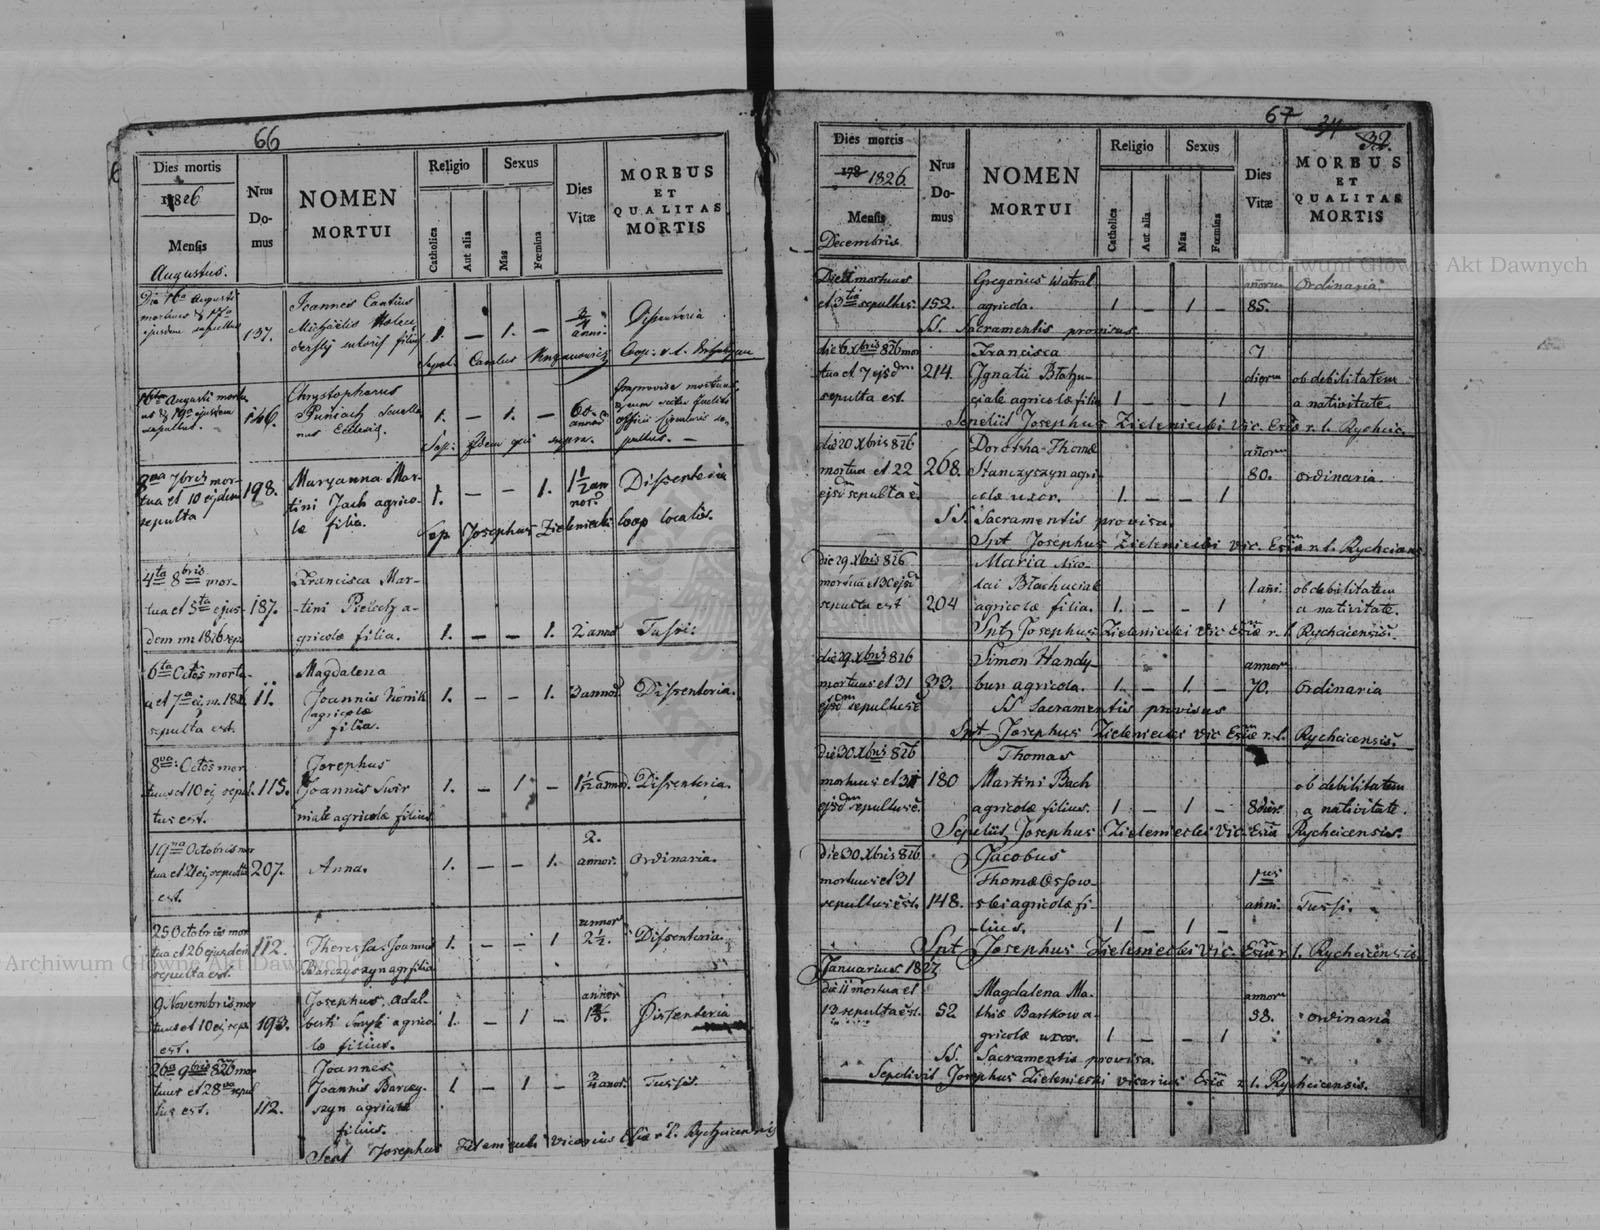 66
Dies mortis
1826
Mensis
Augustus.
Nrus
Do-
mus
NOMEN
MORTUI
Religio
Catholica
Aut alia
Sexus
Mas
Fœmina
Dies
Vitæ
MORBUS
ET
QUALITAS
MORTIS
Die 16a Augusti
mortuus & 17a
ejusdem sepultus
137.
Joannes Cantius
Michaëlis
sutoris filius
1. - 1. -
3/4
anni.
Dissenteria
Sepel. Carolus Coop: r. l.
Augusti mortu-
us & 19a ejusdem
sepultus.
146.
Chrystophorus
nus Ecclesiæ
1. - 1. -
60.
annor
Improvise mortuus
pultus. -
Sep: Idem qui supra.
8va 7bris mor-
tua et 10 ejusdem
sepulta
198.
Maryanna Mar-
tini Jach agrico-
læ filia.
1. - - 1.
1 1/2 an
nor.
Dissenteria
Sep. Josephus Zieleniecki Coop localis.
4ta 8bris mor-
tua et 5ta ejus-
dem m: 1826 sep.
187.
Francisca Mar-
tini Pielech a-
gricolæ filia.
1. - - 1.
2 annor
Tussi:
6ta Octobs mortu-
a et 7a ej. m. 1826
sepulta est.
11.
Magdalena
Joannis Konik
agricolæ
filia.
1. - - 1.
3 annor.
Dissenteria.
8va: Octobs mor
tuus et 10 ej. sepul.
tus est.
115.
Josephus
Joannis Swir
niak agricolæ filius.
1. - 1 -
1 1/2 annor.
Dissenteria.
19na Octobris mor
tua et 21 ej. sepulta
est.
207.
Anna.
1. - - 1.
2.
annor.
Ordinaria.
25 Octobris mor
tua et 26 ejusdem
sepulta est.
112.
Theressa Joannis
Barczyszyn agr filia
1. - - 1
annor
2 1/2.
Dissenteria.
9 Novembris mor
tuus et 10 ej. sep.
est.
193.
Josephus Adal-
berti Smyk agrico
læ filius.
1. - 1 -
annor
Dissenteria
26a 9bris 826 mor
tuus et 28va sepul
tus est.
112.
Joannes
Joannis Barczy-
szyn agricolæ
filius.
1 - 1 -
Tussis.
Sepel Josephus Zieleniecki Vicarius Esiæ r. l. Rychcicensis
67
34
32.
Dies mortis
178 1826.
Mensis
Decembris.
Nrus
Do-
mus
NOMEN
MORTUI
Religio
Catholica
Aut alia
Sexus
Mas
Fœmina
Dies
Vitæ
MORBUS
ET
QUALITAS
MORTIS
Die 1 mortuus
et 3tia sepultus.
152.
Gregorius Watral
agricola.
1 - 1 -
añorum
85.
Ordinaria
SS. Sacramentis provisus.
die 6 Xbris 826 mor
tua et 7 ejsdm
sepulta est.
214.
Francisca
Ignatii Błahu-
ciak agricolæ filia
1 - - 1
7
dierum
ob debilitatem
a nativitate.
Sepeliit Josephus Zieleniecki Vic. Esiæ r. l. Rychcic.
die 20 Xbris 826
mortua et 22
ejsd sepulta e.
268.
Dorotha Thomæ
Stanczyszyn agri-
colæ uxor.
1. - - 1
añorum
80.
ordinaria.
SS. Sacramentis provisa.
Spt Josephus Zieleniecki Vic. Esiæ r. l. Rychcicens.
die 29 Xbris 826
mortua et 30 ejsd
sepulta est
204
Maria Nico-
lai Błachuciak
agricolæ filia.
1. - - 1
1 añi.
ob debilitatem
a nativitate.
Spt Josephus Zieleniecki Vic Esiæ r. l. Rychcicensis.
die 29. Xbris 826
mortuus et 31
ejsdm sepultus e
33.
Simon Handy-
bur agricola.
1. - 1. -
annor
70.
Ordinaria
SS Sacramentis provisus
Spt Josephus Zieleniecki Vic Esiæ r. l. Rychcicensis.
die 30 Xbris 826
mortuus et 31
ejsdm sepultus e.
180
Thomas
Martini Bach
agricolæ filius.
1 - 1 -
8 dier.
ob debilitatem
a nativitate.
Sepeliit Josephus Zieleniecki Vic. Esiæ Rychcicensis.
die 30 Xbris 826
mortuus et 31
sepultus est.
148.
Jacobus
Thomæ Ossow-
ski agricolæ fi-
lius.
1 - 1 -
1us
anni.
Tussi.
Spt Josephus Zieleniecki Vic. Esiæ r. l. Rychcicensis.
Januarius 1827
die 11 mortua et
13 sepulta est.
52
Magdalena Ma-
thiæ Bartkow a-
gricolæ uxor.
1 - - 1
annor
38.
ordinaria
SS. Sacramentis provisa.
Sepelivit Josephus Zieleniecki vicarius Esiæ r. l. Rychcicensis.
Archiwum Główne Akt Dawnych
Archiwum Główne Akt Dawnych